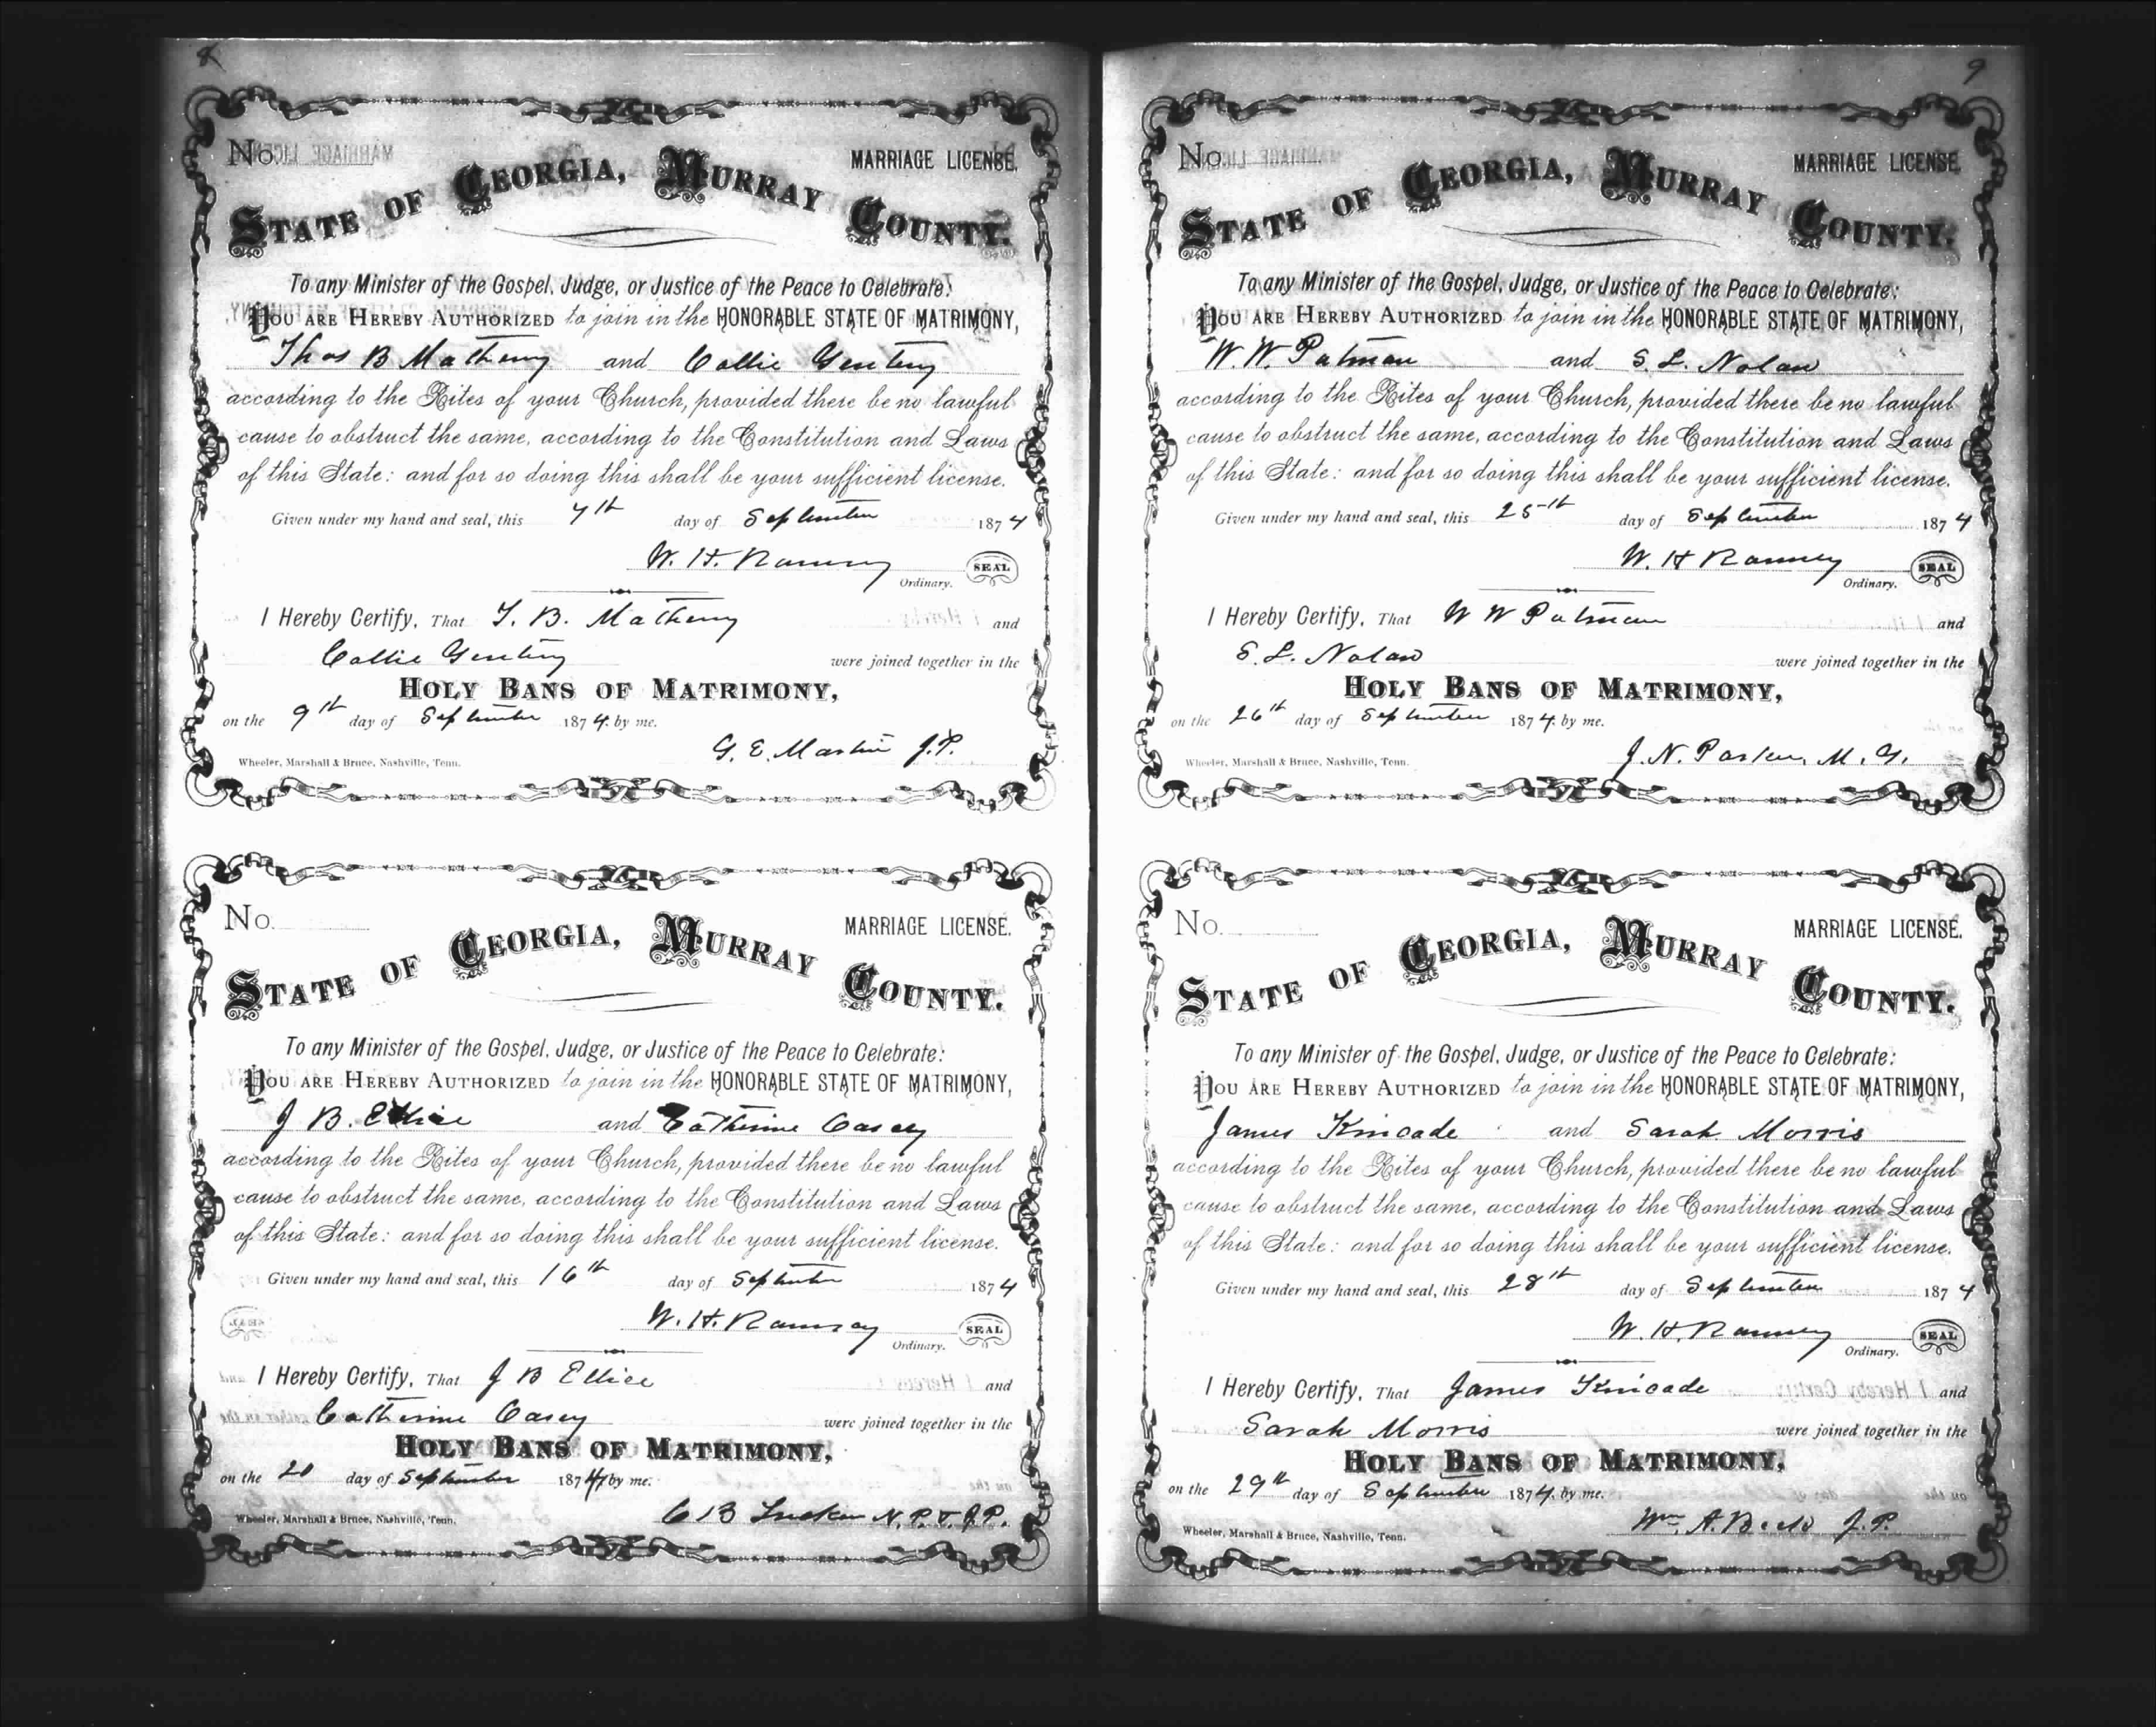 8
No. MARRIAGE LICENSE.
STATE OF GEORGIA, MURRAY COUNTY.
To any Minister of the Gospel, Judge, or Justice of the Peace to Celebrate:
YOU ARE HEREBY AUTHORIZED to join in the HONORABLE STATE OF MATRIMONY,
Thos B Matheny and Callie Gentry
according to the Rites of your Church, provided there be no lawful
cause to obstruct the same, according to the Constitution and Laws
of this State: and for so doing this shall be your sufficient license.
Given under my hand and seal, this 7th day of September 1874
W. H. Ramsey SEAL
Ordinary.
I Hereby Certify, That T. B. Matheny and
Callie Gentry were joined together in the
HOLY BANS OF MATRIMONY,
on the 9th day of September 1874 by me.
G. E. Martin J.P.
Wheeler, Marshall & Bruce, Nashville, Tenn.
No. MARRIAGE LICENSE.
STATE OF GEORGIA, MURRAY COUNTY.
To any Minister of the Gospel, Judge, or Justice of the Peace to Celebrate:
YOU ARE HEREBY AUTHORIZED to join in the HONORABLE STATE OF MATRIMONY,
J B. Ellice and Catherine Casey
according to the Rites of your Church, provided there be no lawful
cause to obstruct the same, according to the Constitution and Laws
of this State: and for so doing this shall be your sufficient license.
Given under my hand and seal, this 16th day of September 1874
W. H. Ramsey SEAL
Ordinary.
I Hereby Certify, That J B Ellice and
Catherine Casey were joined together in the
HOLY BANS OF MATRIMONY,
on the 20 day of September 1874 by me.
C B N.P. & J.P.
Wheeler, Marshall & Bruce, Nashville, Tenn.
9
No. MARRIAGE LICENSE.
STATE OF GEORGIA, MURRAY COUNTY.
To any Minister of the Gospel, Judge, or Justice of the Peace to Celebrate:
YOU ARE HEREBY AUTHORIZED to join in the HONORABLE STATE OF MATRIMONY,
W. W. Putman and S. L. Nolan
according to the Rites of your Church, provided there be no lawful
cause to obstruct the same, according to the Constitution and Laws
of this State: and for so doing this shall be your sufficient license.
Given under my hand and seal, this 25th day of September 1874
W. H Ramsey SEAL
Ordinary.
I Hereby Certify, That W W Putman and
S. L. Nolan were joined together in the
HOLY BANS OF MATRIMONY,
on the 26th day of September 1874 by me.
J. N. Parker, M. G.
Wheeler, Marshall & Bruce, Nashville, Tenn.
No. MARRIAGE LICENSE.
STATE OF GEORGIA, MURRAY COUNTY.
To any Minister of the Gospel, Judge, or Justice of the Peace to Celebrate:
YOU ARE HEREBY AUTHORIZED to join in the HONORABLE STATE OF MATRIMONY,
James Kincade and Sarah Morris
according to the Rites of your Church, provided there be no lawful
cause to obstruct the same, according to the Constitution and Laws
of this State: and for so doing this shall be your sufficient license.
Given under my hand and seal, this 28th day of September 1874
W. H. Ramsey SEAL
Ordinary.
I Hereby Certify, That James Kincade and
Sarah Morris were joined together in the
HOLY BANS OF MATRIMONY,
on the 29th day of September 1874 by me.
Wm. A. Beck J.P.
Wheeler, Marshall & Bruce, Nashville, Tenn.